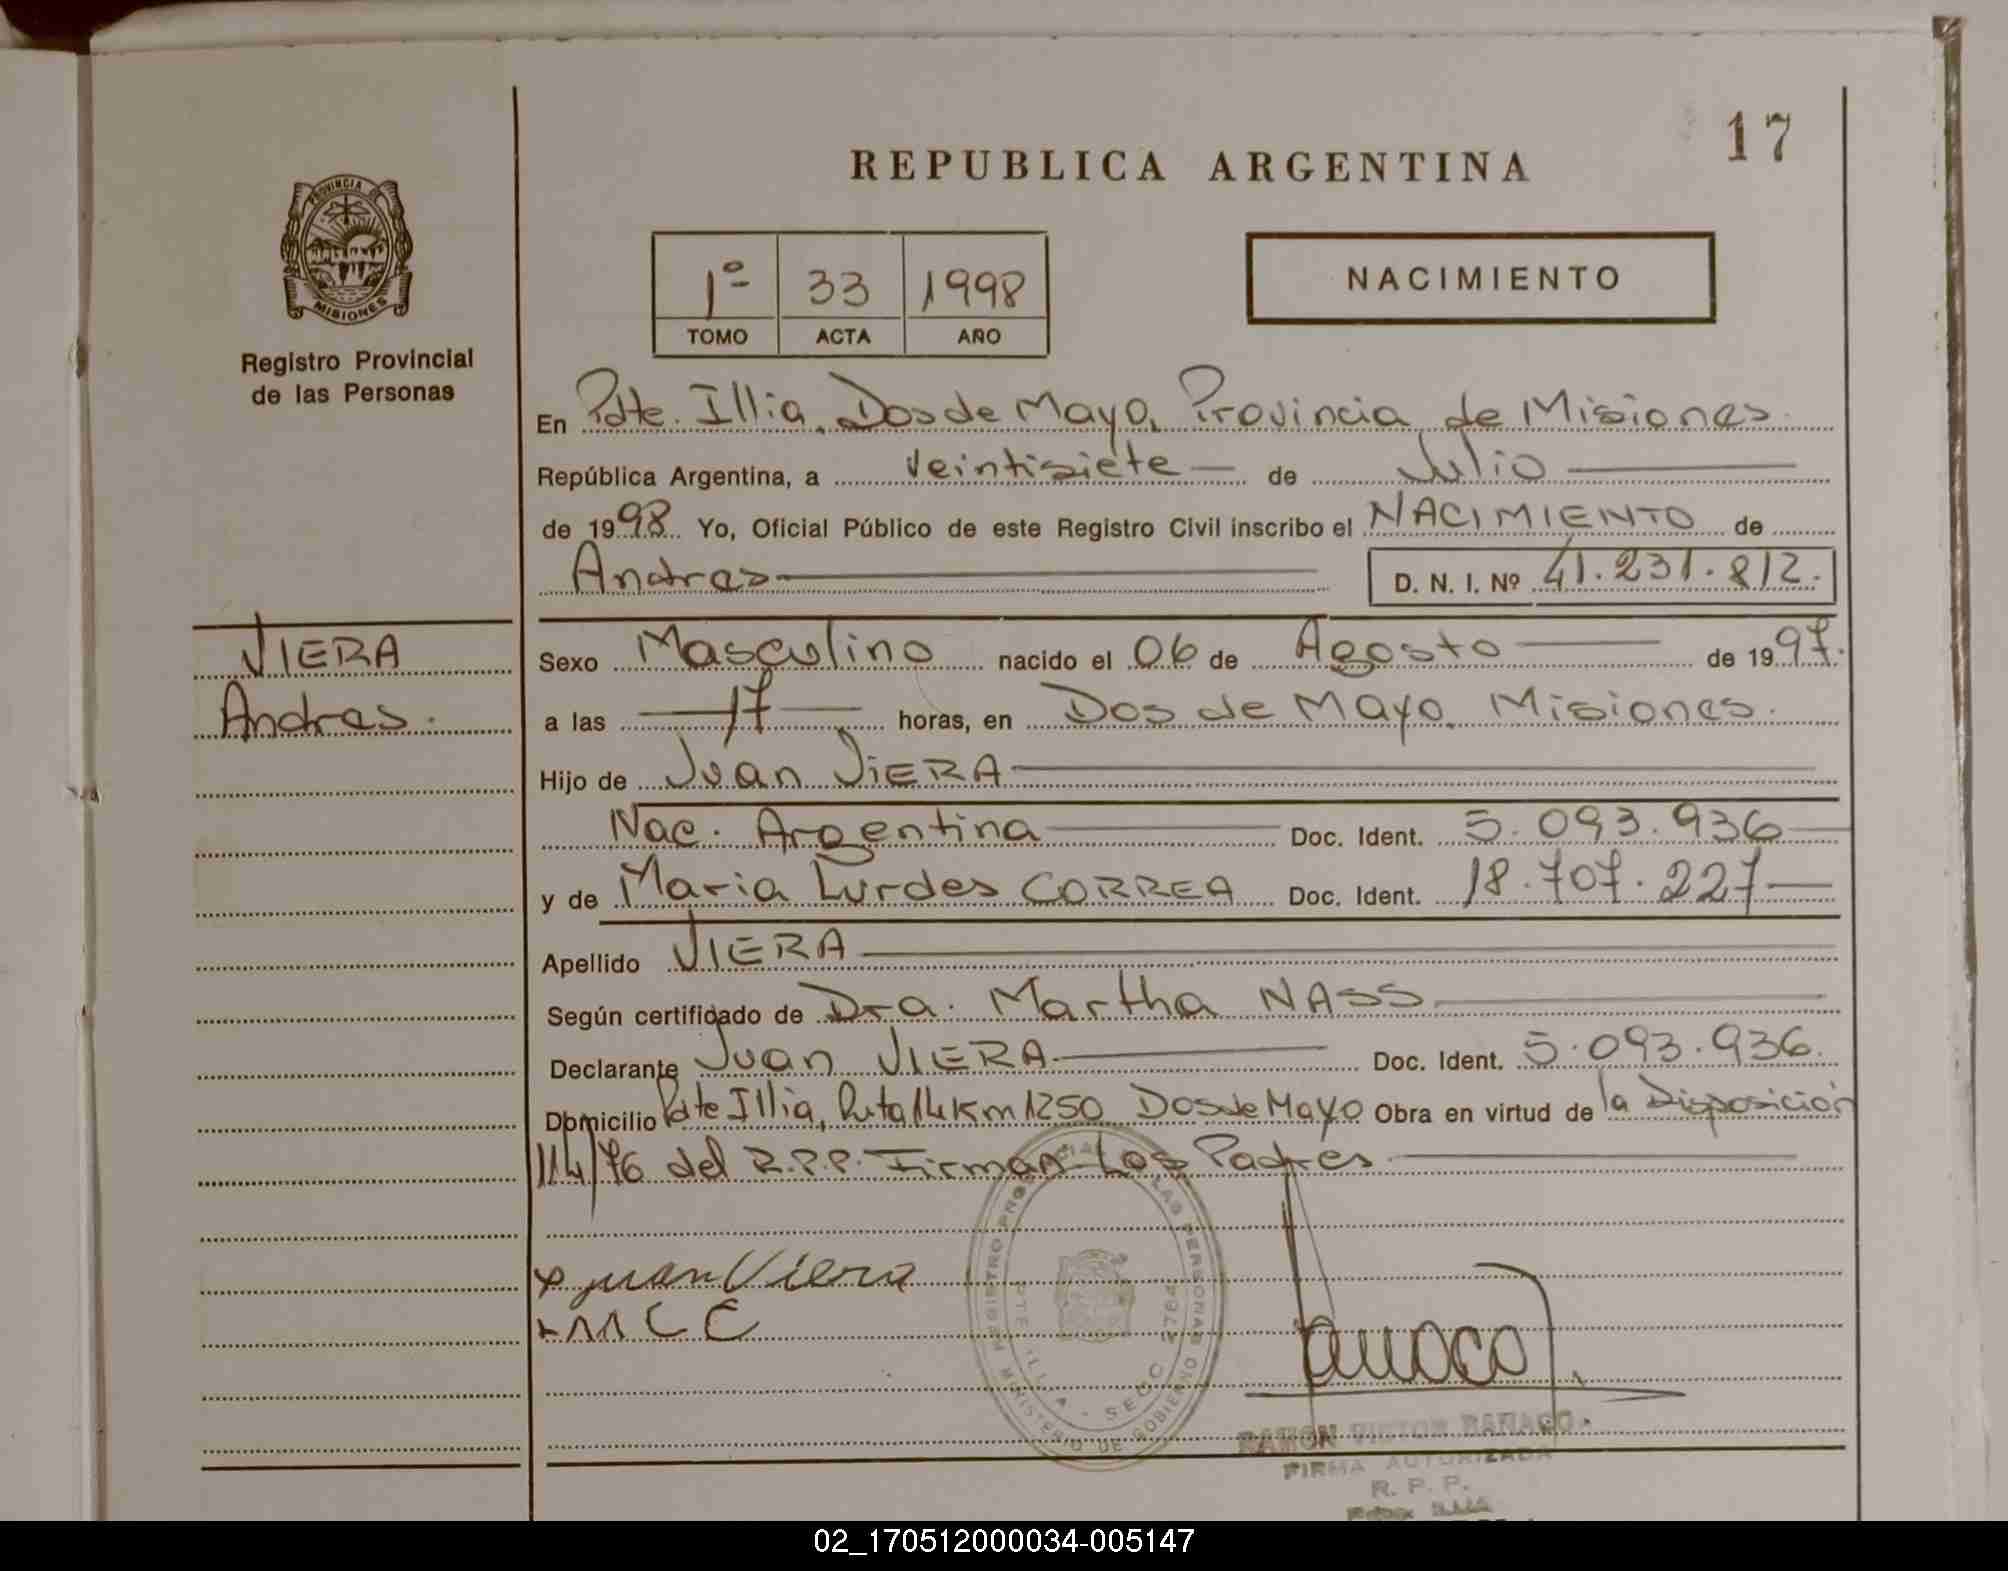 17
REPUBLICA ARGENTINA
PROVINCIA DE
MISIONES
Registro Provincial
de las Personas
1º 33 1998
TOMO ACTA AÑO
NACIMIENTO
En Pdte. Illia, Dos de Mayo, Provincia de Misiones
República Argentina, a veintisiete de Julio
de 1998 Yo, Oficial Público de este Registro Civil inscribo el NACIMIENTO de
Andres D. N. I. Nº 41.231.812.
VIERA
Andres.
Sexo Masculino nacido el 06 de Agosto de 1997.
a las 17 horas, en Dos de Mayo, Misiones.
Hijo de Juan VIERA
Nac. Argentina Doc. Ident. 5.093.936
y de Maria Lurdes CORREA Doc. Ident. 18.707.227
Apellido VIERA
Según certificado de Dra. Martha NASS
Declarante Juan VIERA Doc. Ident. 5.093.936.
Domicilio Pdte Illia, Ruta 14 Km 1250 Dos de Mayo Obra en virtud de la Disposición
114/76 del R.P.P. Firman Los Padres
x Juan Viera
MLC
REGISTRO PROVINCIAL DE LAS PERSONAS
MINISTERIO DE GOBIERNO
PTE. ILLIA - SECC 2784
RAMON VICTOR
FIRMA AUTORIZADA
R. P. P.
02_170512000034-005147